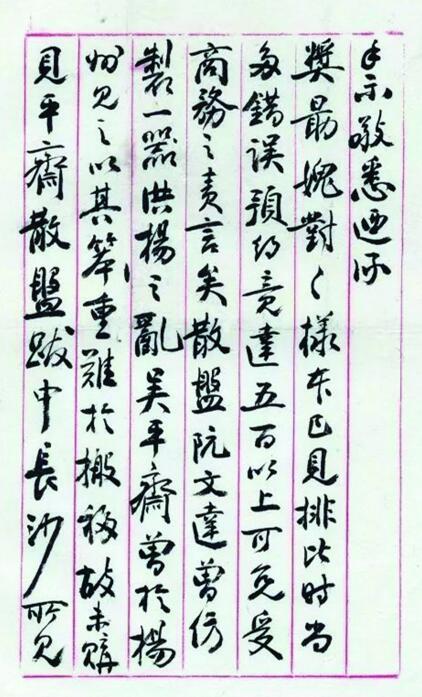 手示敬悉迺承
獎勗媿對々樣本已見排比時尚
多錯誤預約竟達五百以上可免受
商務之責言矣散盤阮文達曾仿
製一器洪楊之亂吳平齋曾於揚
州見之以其笨重難於搬移故未購
見平齋散盤跋中長沙所見